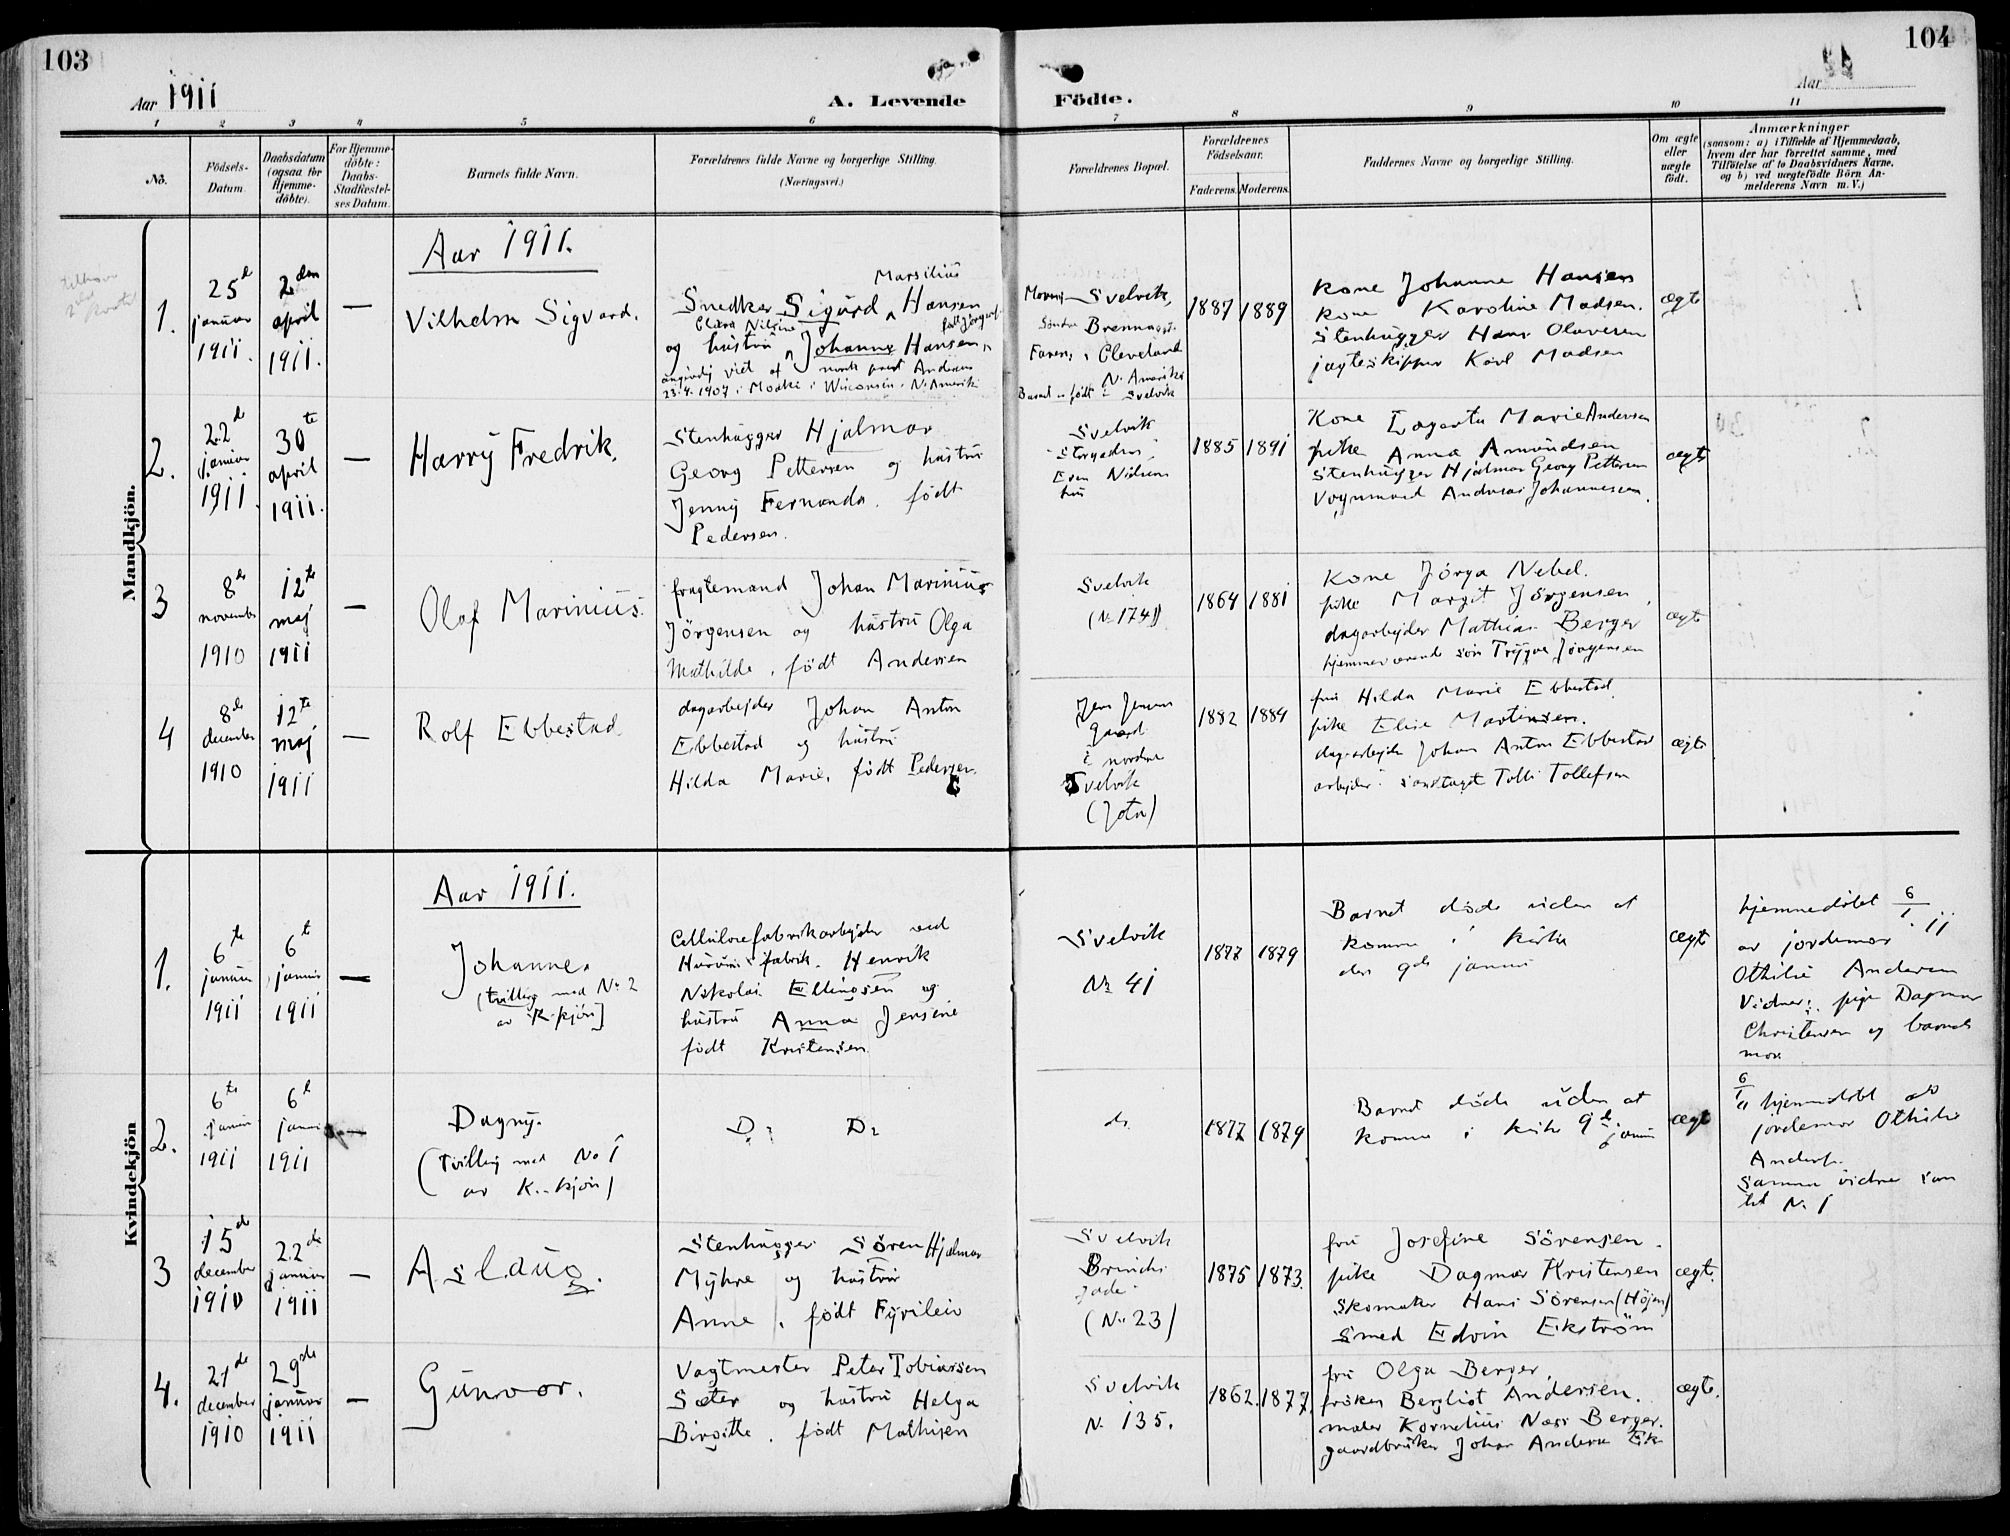 103
104
Aar 1911
A. Levende
Födte.
Aar 11
1 2 3 4 5 6 7 8 9 10 11
No.
Födsels-
Datum.
Daabsdatum
(ogsaa for
Hjemme-
döbte).
For Hjemme-
döbte:
Daabs-
Stadfæstel-
ses Datum.
Barnets fulde Navn.
Forældrenes fulde Navne og borgerlige Stilling.
(Næringsvei.)
Forældrenes Bopæl.
Forældrenes
Födselsaar.
Faderens.
Moderens.
Faddernes Navne og borgerlige Stilling.
Om ægte
eller
uægte
födt.
Anmærkninger
(saasom: a) i Tilfælde af Hjemmedaab,
hvem der har forrettet samme, med
Tilföielse af to Daabsvidners Navne,
og b) ved uægtefödte Börn An-
melderens Navn m. V.)
Mandkjön.
Aar 1911.
1.
25d
januar
1911.
2den
april
1911.
—
Vilhelm Sigvard.
Marsilius
Snedker Sigurd Hansen
Clara Nilsine
og hustru Johanne Hansen,
angivelig viet af norsk prest Andersen
23.4.1907 i Wisconsin, N. Amerika
Svelvik,
Søndre Brenna
Faren, i Cleveland
N. Amerika
Barnet født i Svelvik
1887
1889
Kone Johanne Hansen
kone Karoline Madsen.
stenhugger Hans Olavesen
jagteskipper Karl Madsen
ægte
2.
22d
januar
1911.
30te
april
1911.
—
Harry Fredrik.
Stenhugger Hjalmar
Georg Pettersen og hustru
Jenny Fernanda, født
Pedersen.
Svelvik
Storgaden,
Even Nielsens
hus
1885
1891
Kone Lagerta Marie Andersen
pike Anna Amundsen
Stenhugger Hjalmar Georg Pettersen
Vognmand Andreas Johannessen.
ægte
3
8de
november
1910
12te
maj
1911
—
Olaf Marinius.
fragtemand Johan Marinius
Jörgensen og hustru Olga
Mathilde, født Andersen
Svelvik
(No 174)
1864
1881
Kone Jörga Nebel.
pike Margit Jörgensen,
dagarbejder Mathias Berger
hjemmeværende søn Trygve Jörgensen
ægte
4
8de
december
1910
12te
maj
1911
—
Rolf Ebbestad.
dagarbejder Johan Anton
Ebbestad og hustru
Hilda Marie, født Pedersen.
Jens Jensens
gaard
i nordre
Svelvik
1882
1884
fru Hilda Marie Ebbestad.
pike Elise Martinsen.
dagarbejder Johan Anton Ebbestad
arbejder Tollefsen
ægte
Kvindekjön
Aar 1911.
1.
6te
januar
1911
6te
januar
1911
—
Johanne.
(tvilling med No 2
av K.kjön)
Cellulosefabrikarbejder ved
Hurums fabrik, Henrik
Nikolai Ellingsen og
hustru Anna Jensine
født Kristensen
Svelvik
No 41
1877
1879
Barnet døde uden at
komme i kirke
den 9de januar
ægte
hjemmedøbt 6/1 11
av jordemor
Othilie Andersen
Vidner: pige Dagmar
Christensen og barnets
mor
2.
6te
januar
1911
6te
januar
1911
—
Dagny.
(Tvilling med No 1
av K.-kjön)
Do Do
do
1877
1879
Barnet døde uden at
komme i kirke 9de januar
ægte
6/1 11 hjemmedøbt av
jordemor Othilie
Andersen.
Samme vidner som
til No 1
3
15de
december
1910
22de
januar
1911
—
Aslaug.
Stenhugger Sören Hjalmar
Myhre og hustru
Anne, født Fyrileiv
Svelvik
(No 23)
1875
1873.
fru Josefine Sörensen.
pike Dagmar Kristensen
Skomaker Hans Sörensen (Höjen)
Smed Edvin Eikström
ægte.
4.
21de
december
1910
29de
januar
1911
—
Gunvor.
Vagtmester Peter Tobiassen
Sæter og hustru Helga
Birgitte, født Mathisen
Svelvik
No 135.
1862.
1877.
fru Olga Berger,
frøken Bergliot Andersen.
maler Kornelius Næss Berger.
gaardbruker Johan Andersen Eik
ægte.